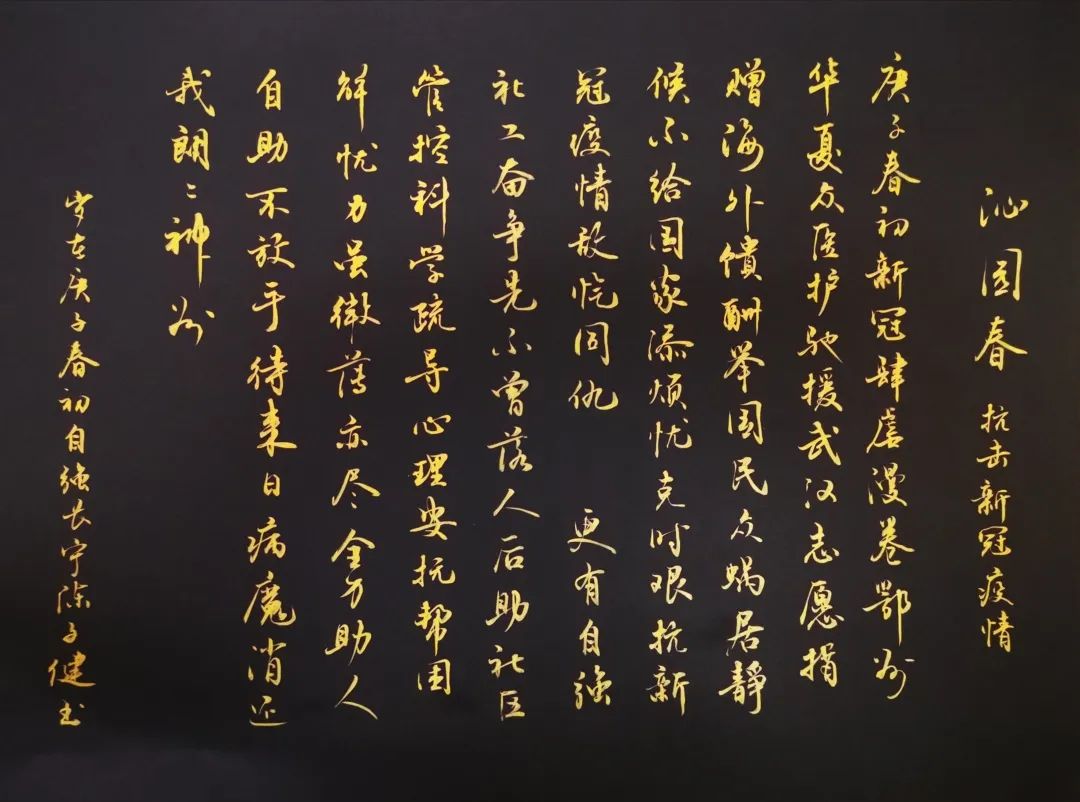 沁园春 抗击新冠疫情
庚子春初新冠肆虐漫卷鄂州
华夏众医护驰援武汉志愿捐
赠海外馈酬举国民众蜗居静
候不给国家添烦忧克时艰抗新
冠疫情敌忾同仇 更有自强
社工奋争先不曾落人后助社区
管控科学疏导心理安抚帮困
解忧力虽微薄亦尽全力助人
自助不放手待来日病魔消还
我朗〻神州
岁在庚子春初自强长宁陈子健书